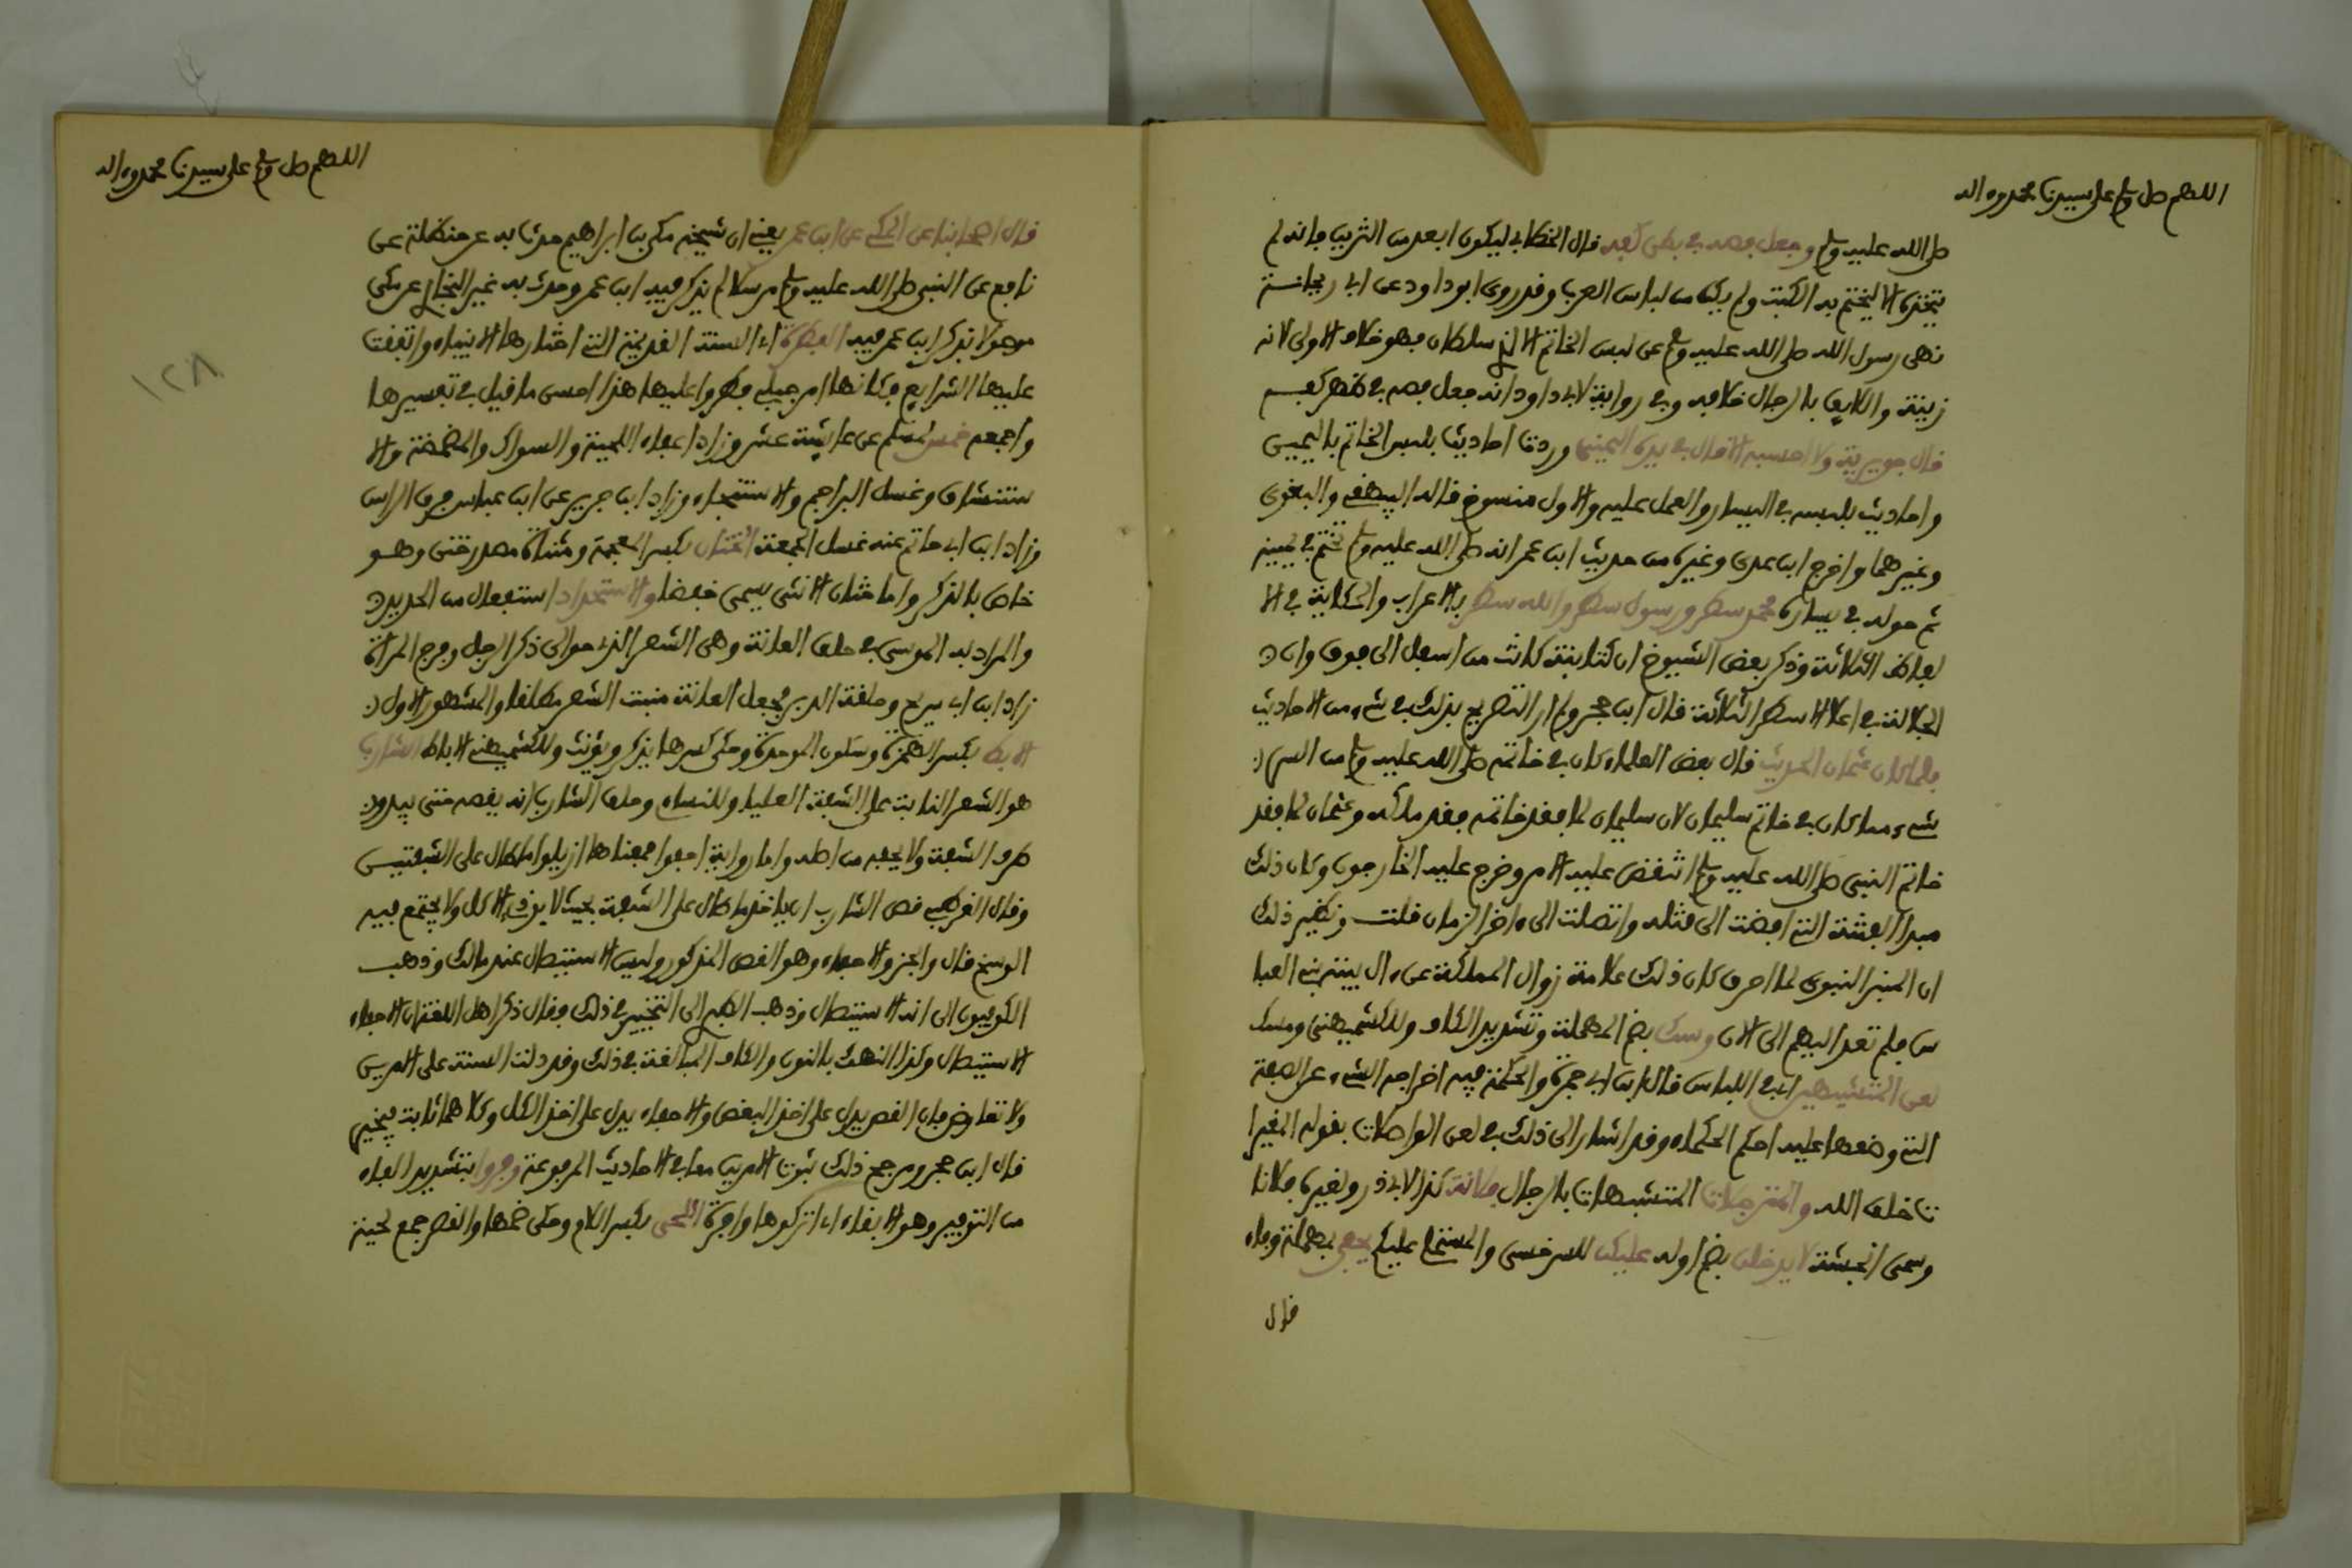 اللهم صل وسلم على سيدنا محمد وءاله
صلى الله عليه وسلم وجعل فصه في بطن كفه قال الخطابي ليكون ابعد من التزين فإنه لم
يتخذه الا ليختم به الكتب ولم يكن من لباس العرب وقد روى ابو داود عن ابي ريحانة
نهى رسول الله صلى الله عليه وسلم عن لبس الخاتم الا لذي سلطان فهو خلاف الاولى لانه
زينة واللايق بالرجال خلافه وفي رواية لابي داود انه جعل فصه في ظهر كفه
قال جويرية ولا احسبه الا قال في يده اليمنى وردت احاديث بلبس الخاتم باليمين
واحاديث بلبسه في اليسار والعمل عليه والاول منسوخ قاله البيهقي والبغوي
وغيرهما واخرج ابن عدي وغيره من حديث ابن عمر انه صلى الله عليه وسلم تختم في يمينه
ثم حوله في يساره محمد سطر ورسول سطر والله سطر بالاعراب والحكاية في الا
لفاظ الثلاثة وذكر بعض الشيوخ ان كتابته كانت من اسفل الى فوق وان
الجلالة في اعلا الاسطر الثلاثة قال ابن حجر ولم ار التصريح بذلك في شيء من الاحاديث
فلما كان عثمان الحديث قال بعض العلماء كان في خاتمه صلى الله عليه وسلم من السر
شيء مما كان في خاتم سليمان لان سليمان لما فقد خاتمه فقد ملكه وعثمان لما فقد
خاتم النبي صلى الله عليه وسلم انتقض عليه الامر وخرج عليه الخارجون وكان ذلك
مبدا الفتنة التي افضت الى قتله واتصلت الى ءاخر الزمان قلت ونظير ذلك
ان المنبر النبوي لما احرق كان ذلك علامة زوال المملكة عن ءال بيته بني العبا
س فلم تعد اليهم الى الان وسك بضم المهملة وتشديد الكاف وللكشميهني ومسك
لعن المتشبهين اي في اللباس قال ابن ابي جمرة والحكمة فيه اخراجه الشيء عن الصفة
التي وضعها عليه احكم الحكماء وقد اشار الى ذلك في لعن الواصلات بقوله المغيرا
ت خلق الله والمترجلات المتشبهات بالرجال فلانة كذا لابي ذر ولغيره فلانا
وسمى انجشة لا يدخلن بضم اوله عليكن للسرخسي والمستملي عليكم يحفي بمهملة وفاء
قال
اللهم صل وسلم على سيدنا محمد وءاله
١٢٨
قال اصحابنا عن المكي عن ابن عمر يعني ان شيخه مكي بن ابراهيم حدثنا به عن حنظلة عن
نافع عن النبي صلى الله عليه وسلم مرسلا لم يذكر فيه ابن عمر وحدث به غير البخاري عن مكي
موصولا بذكر ابن عمر فيه الفطرة اي السنة القديمة التي اختارها الانبياء واتفقت
عليها الشرايع فكانها امر جبلي فطروا عليها هذا احسن ما قيل في تفسيرها
واجمعه خمس لمسلم عن عايشة عشر وزاد اعفاء اللحية والسواك والمضمضة والا
ستنشاق وغسل البراجم والاستنجاء وزاد ابن جرير عن ابن عباس فرق الراس
وزاد ابن ابي حاتم عنه غسل الجمعة الختان بكسر المعجمة ومثناة مصدر ختن وهو
خاص بالذكر واما ختان الانثى يسمى خفضا والاستحداد استفعال من الحديد
والمراد به الموسى في حلق العانة وهي الشعر الذي حوالي ذكر الرجل وفرج المراة
زاد ابن ابي سريج وحلقة الدبر فجعل العانة منبت الشعر مطلقا والمشهور الاول
الابط بكسر الهمزة وسكون الموحدة وحكى كسرها يذكر ويؤنث وللكشميهني الاباط الشارب
هو الشعر النابت على الشفة العليا وللنساء وحلق الشارب انه يقصه حتى يبدو
طرف الشفة ولا يحفيه من اصله واما رواية احفوا فمعناها ازيلوا ما طال على الشفتين
وقال القرطبي قص الشارب ان ياخذ ما طال على الشفة بحيث لا يوذي الاكل ولا يجتمع فيه
الوسخ قال والجز والاحفاء وهو القص المذكور وليس الاستيصال عند مالك وذهب
الكوفيون الى انه الاستيصال وذهب الطبري الى التخيير في ذلك فقال ذكر اهل اللغة ان الاحفاء
الاستيصال وكذا النهك بالنون والكاف المبالغة في ذلك وقد دلت السنة على الامرين
ولا تعارض فان القص يدل على اخذ البعض والاحفاء يدل على اخذ الكل وكلاهما ثابت فيخير
قال ابن حجر ومرجح ذلك ثبوت الامرين معا في الاحاديث المرفوعة وفروا بتشديد الفاء
من التوفير وهو الابقاء اي اتركوها وافرة اللحى بكسر اللام وحكى ضمها والقصر جمع لحية